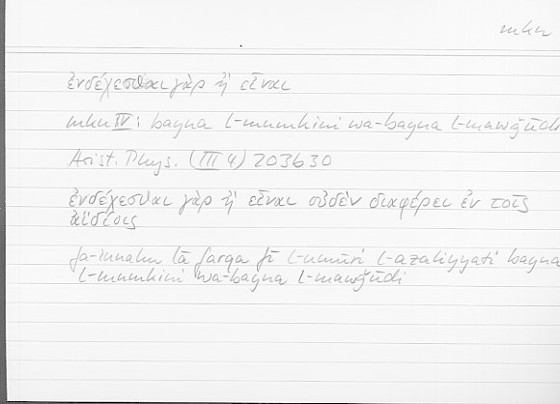 mkn
ἐνδέχεσθαι γὰρ ἢ εἶναι
mkn IV: bayna l-mumkini wa-bayna l-mawǧūdi
Arist. Phys. (III 4) 203b30
ἐνδέχεσθαι γὰρ ἢ εἶναι οὐδὲν διαφέρει ἐν τοῖς
ἀϊδίοις
fa-innahu lā farqa fī l-umūri l-azaliyyati bayna
l-mumkini wa-bayna l-mawǧūdi